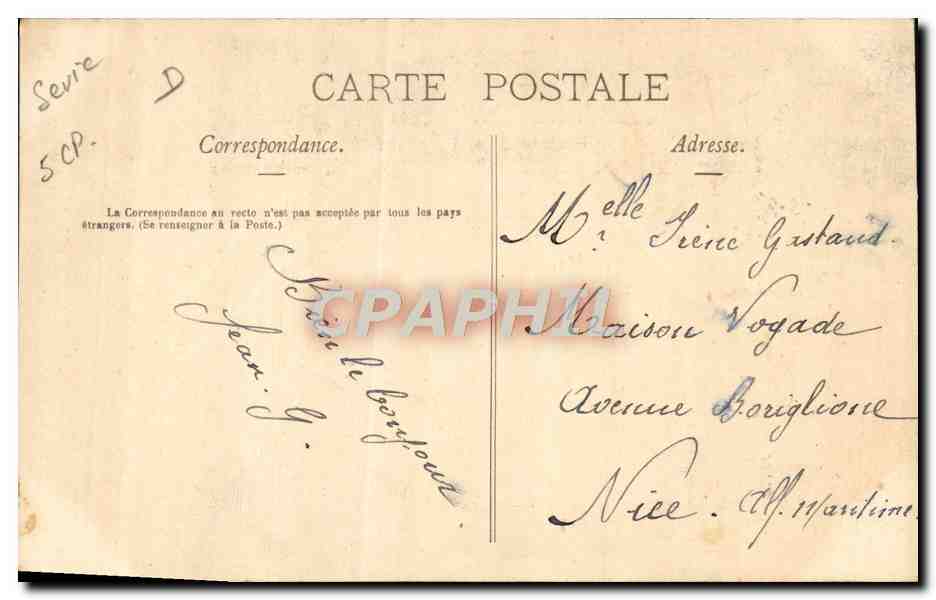 Serie
5 CP.
D
CARTE POSTALE
Correspondance.
La Correspondance au recto n'est pas acceptée par tous les pays
étrangers. (Se renseigner à la Poste.)
Bien le bonjour.
Jean. G.
Adresse.
Melle Irène Gastaud.
Maison Vogade
Avenue Boriglione
Nice. Alp. Maritime.
CPAPHIL